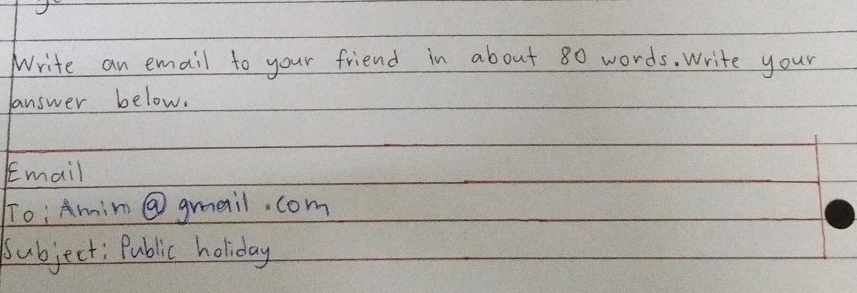 Write an email to your friend in about 80 words. Write your
answer below.
Email
To: Amim @ gmail .com
Subject: Public holiday